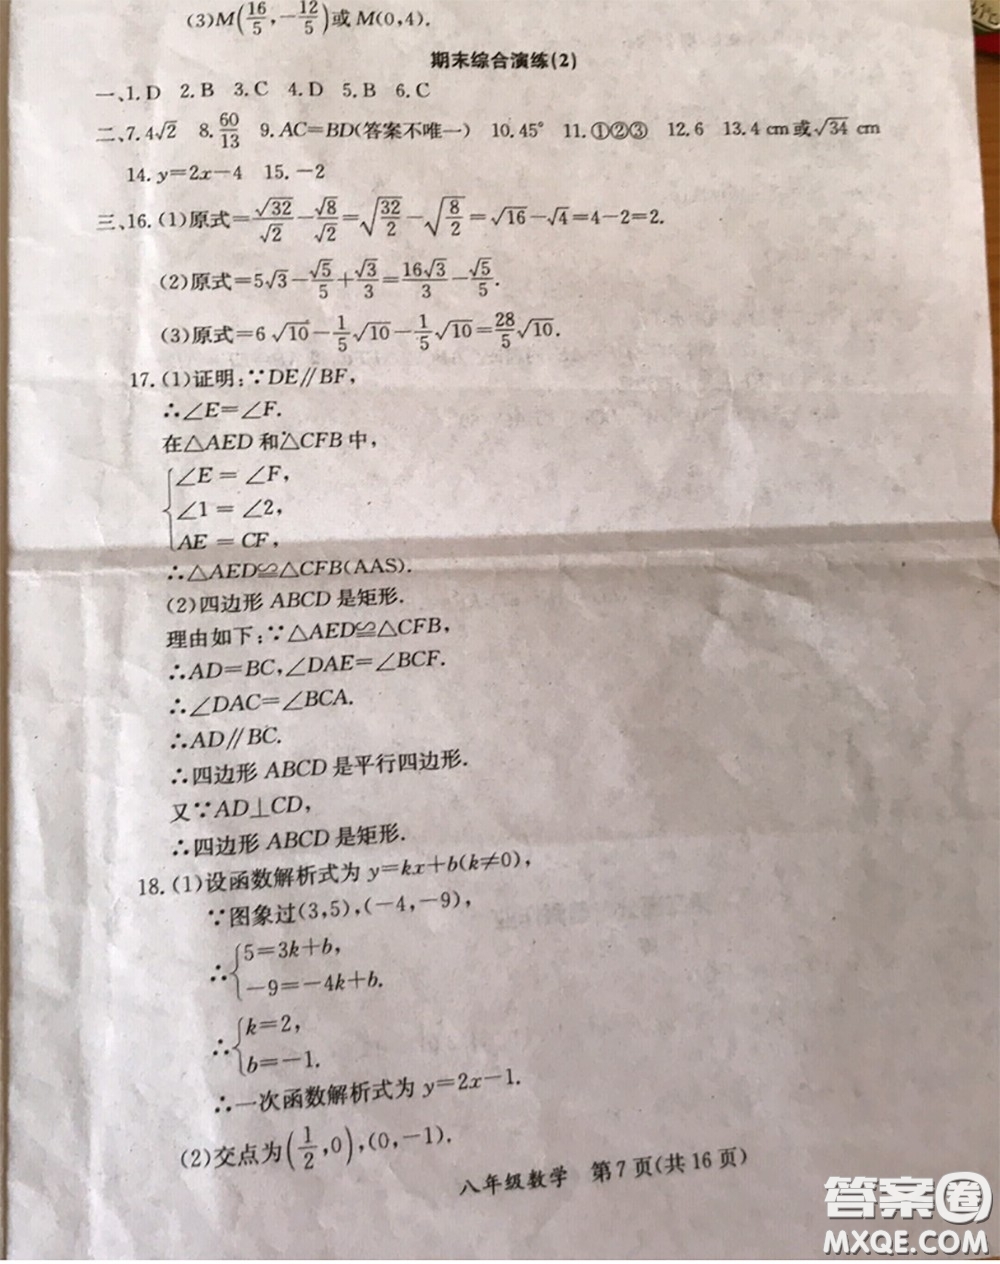 (3)M(16/5,-12/5)或M(0,4).
期末综合演练(2)
一、1.D 2.B 3.C 4.D 5.B 6.C
二、7.4√2 8.60/13 9.AC=BD(答案不唯一) 10.45° 11.①②③ 12.6 13.4 cm或√34 cm
14.y=2x-4 15.-2
三、16.(1)原式=√32/√2-√8/√2=√(32/2)-√(8/2)=√16-√4=4-2=2.
(2)原式=5√3-√5/5+√3/3=16√3/3-√5/5.
(3)原式=6√10-1/5√10-1/5√10=28/5√10.
17.(1)证明:∵DE∥BF,
∴∠E=∠F.
在△AED和△CFB中,
{∠E=∠F,
∠1=∠2,
AE=CF,
∴△AED≌△CFB(AAS).
(2)四边形ABCD是矩形.
理由如下:∵△AED≌△CFB,
∴AD=BC,∠DAE=∠BCF.
∴∠DAC=∠BCA.
∴AD∥BC.
∴四边形ABCD是平行四边形.
又∵AD⊥CD,
∴四边形ABCD是矩形.
18.(1)设函数解析式为y=kx+b(k≠0),
∵图象过(3,5),(-4,-9),
∴{5=3k+b,
-9=-4k+b.
∴{k=2,
b=-1.
∴一次函数解析式为y=2x-1.
(2)交点为(1/2,0),(0,-1).
八年级数学 第7页(共16页)
答案圈
MXQE.COM